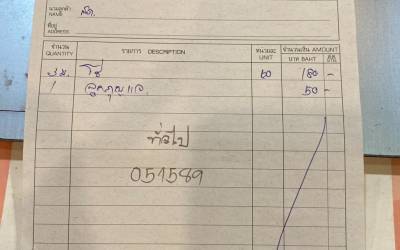 นามลูกค้า
NAME สด.
ที่อยู่
ADDRESS
จำนวน รายการ DESCRIPTION หน่วยละ จำนวนเงิน AMOUNT
QUANTITY UNIT บาท BAHT
3 ม. โซ่ 60 180 -
1 ลูกกุญแจ 50 -
ทั่วไป
051589